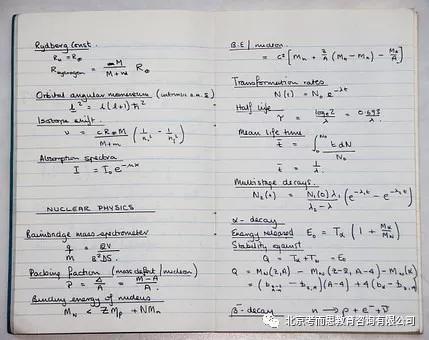 Rydberg Const.
R∞ = R∞
R hydrogen = M / M+m R∞
Orbital angular momentum (intrinsic
l² = l(l+1)ħ²
Isotope shift.
ν = cR∞M / M+m (1/n₁² - 1/n₂²)
Absorption spectra
I = I₀e^-μx
NUCLEAR PHYSICS
Bainbridge mass spectrometer
q/m = BV / B²DS.
Packing fraction (mass defect/nucleon)
P = Δ/A = M-A / A.
Binding energy of nucleus
M_N < ZMp + NMn
B.E / nucleon.
= c² [Mn + Z/A (MH - Mn) - MA/A]
Transformation rates
N(t) = N₀ e^-λt
Half life
τ = loge2 / λ = 0.693 / λ.
Mean life time.
t̄ = ∫₀^N₀ t dN / N₀
t̄ = 1/λ.
Multistage decays.
N₂(t) = N₁(0)λ₁ / λ₂-λ (e^-λ₁t - e^-λ₂t)
α - decay
Energy released E₀ = Tα (1 + Mα/MN)
Stability against
Q = Tα + TN = E₀
Q = MN(Z,A) - MN(Z-2, A-4) - MN(α)
= (bZ,A - bZ,A)(A-4) + 4(bα - bZ,A)
β⁻ - decay n → p + e⁻ + ν̄
北京考而思教育咨询有限公司